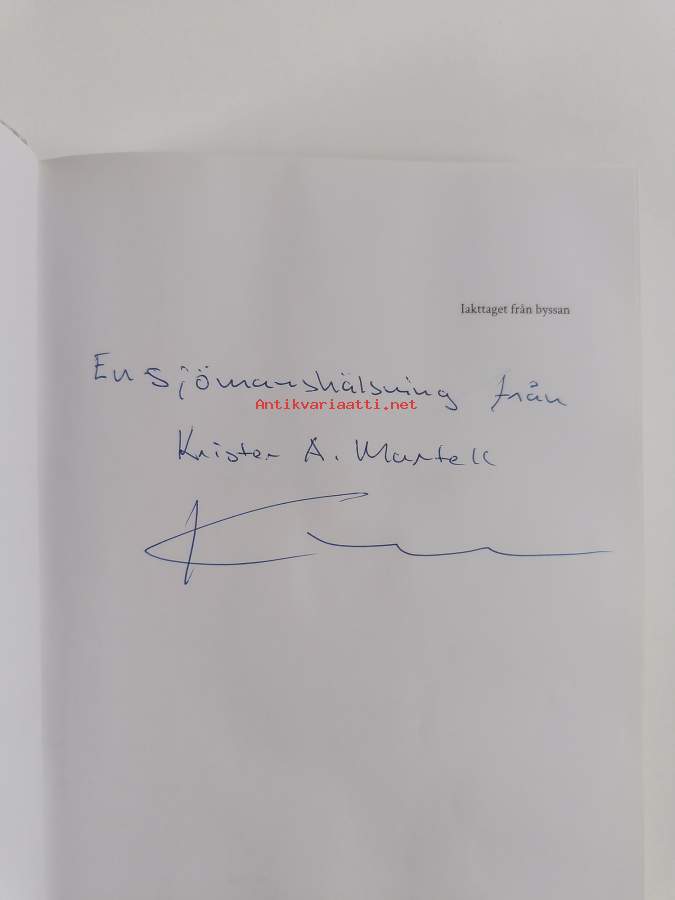 Iakttaget från byssan
En sjömanshälsning från
Antikvariaatti.net
Krister A. Martell